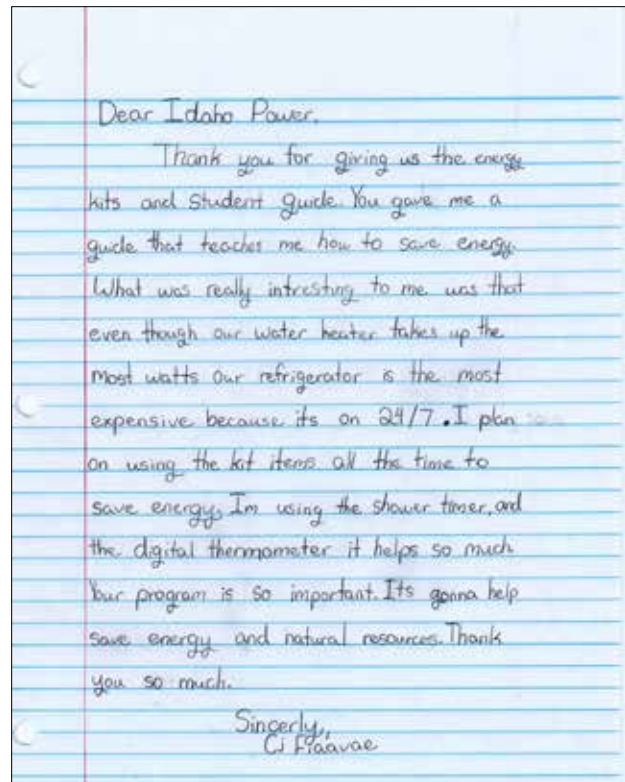 Dear Idaho Power,
Thank you for giving us the energy
kits and Student guide. You gave me a
guide that teaches me how to save energy.
What was really intresting to me was that
even though our water heater takes up the
most watts our refrigerator is the most
expensive because its on 24/7. I plan
on using the kit items all the time to
save energy. Im using the shower timer, and
the digital thermometer it helps so much
Your program is so important. Its gonna help
save energy and natural resources. Thank
you so much.
Sincerly,
CJ